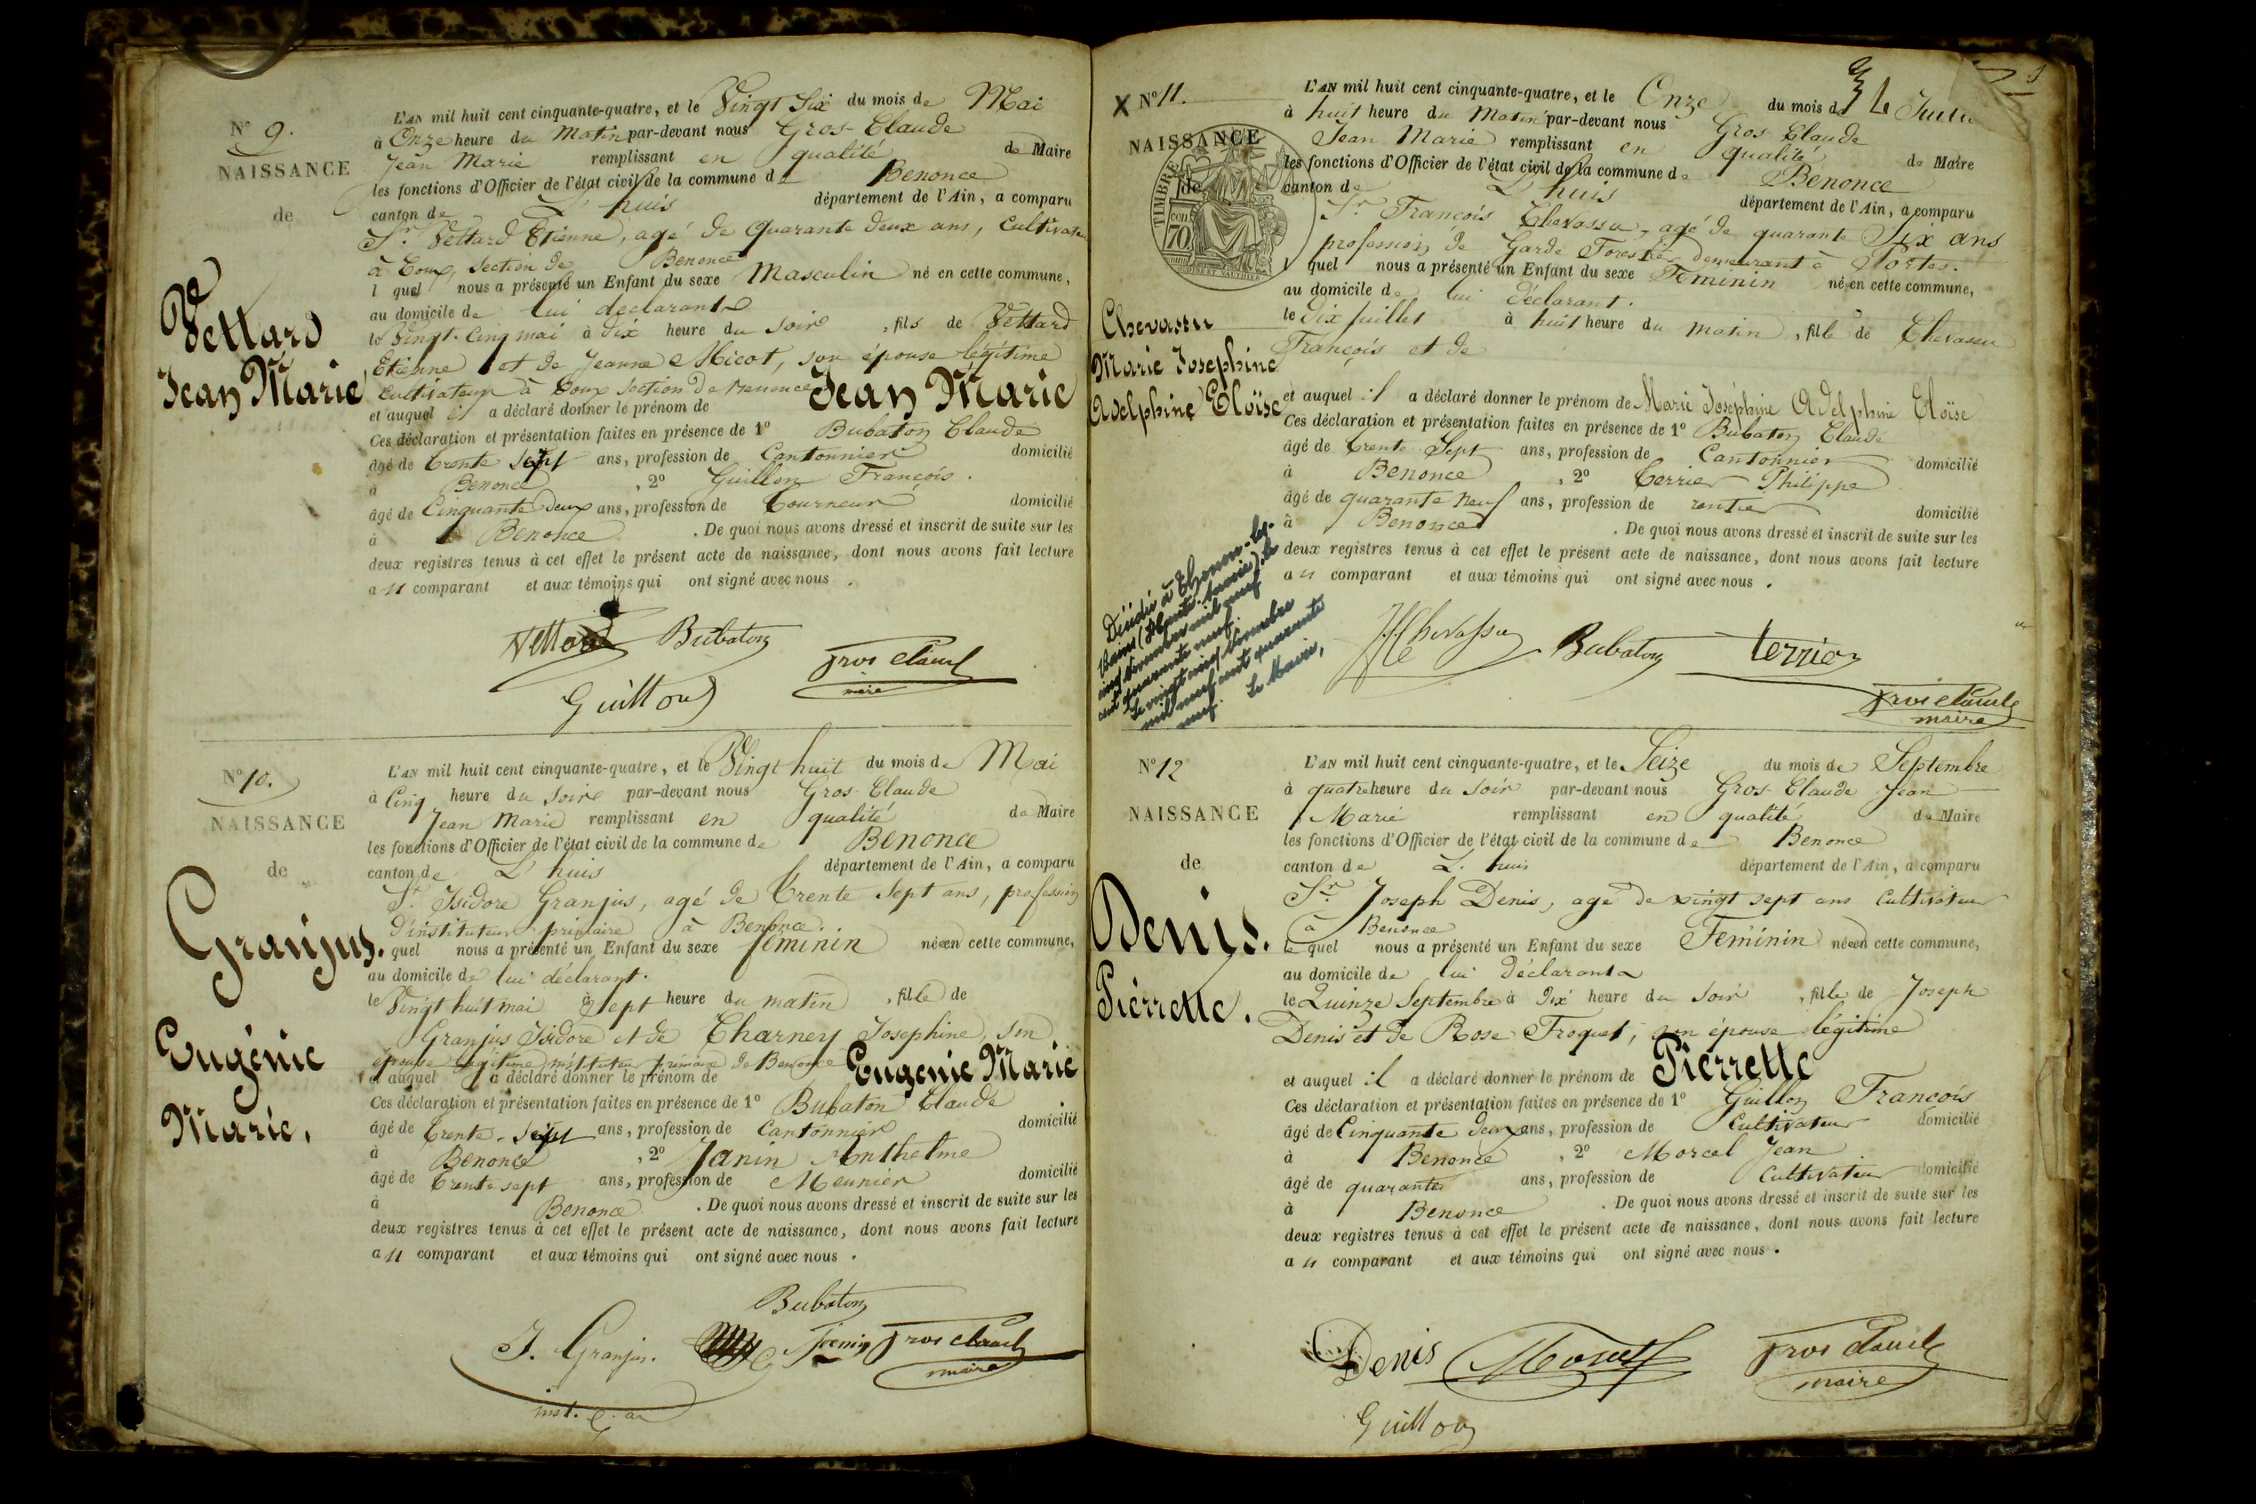 N° 9.
NAISSANCE
de
Vettard
Jean Marie
L'AN mil huit cent cinquante-quatre, et le Vingt Six du mois de Mai
à Onze heure du Matin par-devant nous Gros-Claude
Jean Marie remplissant en qualité de Maire
les fonctions d'Officier de l'état civil de la commune de Benonce
canton de L'huis département de l'Ain, a comparu
Sr. Vettard Etienne, agé de Quarante deux ans, Cultivateur
à Coux, Section de Benonce
l quel nous a présenté un Enfant du sexe Masculin né en cette commune,
au domicile de lui déclarant
le Vingt-Cinq mai à dix heure du Soir, fils de Vettard
Etienne et de Jeanne Micot, son épouse légitime
Cultivateur à Coux Section de Benonce Jean Marie
et auquel il a déclaré donner le prénom de
Ces déclaration et présentation faites en présence de 1° Bubaton Claude
âgé de Trente Sept ans, profession de Cantonnier domicilié
à Benonce, 2° Guillon François.
âgé de Cinquante deux ans, profession de Tourneur domicilié
à Benonce. De quoi nous avons dressé et inscrit de suite sur les
deux registres tenus à cet effet le présent acte de naissance, dont nous avons fait lecture
au comparant et aux témoins qui ont signé avec nous.
Vettard Bubaton
Gros Claude
maire
Guillon
N° 10.
NAISSANCE
de
Granjus.
Eugénie
Marie.
L'AN mil huit cent cinquante-quatre, et le Vingt huit du mois de Mai
à Cinq heure du Soir par-devant nous Gros-Claude
Jean Marie remplissant en qualité de Maire
les fonctions d'Officier de l'état civil de la commune de Benonce
canton de L'huis département de l'Ain, a comparu
Sr. Isidore Granjus, agé de Trente Sept ans, profession
d'instituteur primaire à Benonce.
quel nous a présenté un Enfant du sexe féminin née en cette commune,
au domicile de lui déclarant.
le Vingt huit mai à Sept heure du matin, fille de
Granjus Isidore et de Charney Josephine, son
épouse légitime instituteur primaire de Benonce Eugénie Marie
et auquel il a déclaré donner le prénom de
Ces déclaration et présentation faites en présence de 1° Bubaton Claude
âgé de Trente-Sept ans, profession de Cantonnier domicilié
à Benonce, 2° Janin Anthelme
âgé de Trente sept ans, profession de Meunier domicilié
à Benonce. De quoi nous avons dressé et inscrit de suite sur les
deux registres tenus à cet effet le présent acte de naissance, dont nous avons fait lecture
au comparant et aux témoins qui ont signé avec nous.
Bubaton
J. Granjus. Gros Claude
maire
inst.
X N° 11.
NAISSANCE
de
TIMBRE
70
Chevassu
Marie Josephine
Adelphine Eloïse
L'AN mil huit cent cinquante-quatre, et le Onze du mois de
à huit heure du Matin par-devant nous Gros Claude
Jean Marie remplissant en qualité de Maire
les fonctions d'Officier de l'état civil de la commune de Benonce
canton de L'huis département de l'Ain, a comparu
Sr. François Chevassu, agé de quarante Six ans
profession de Garde Forestier demeurant à Portes.
l quel nous a présenté un Enfant du sexe Féminin né en cette commune,
au domicile de lui déclarant.
le Dix Juillet à huit heure du matin, fille de Chevassu
François et de
et auquel il a déclaré donner le prénom de Marie Joséphine Adelphine Eloïse
Ces déclaration et présentation faites en présence de 1° Bubaton Claude
âgé de Trente Sept ans, profession de Cantonnier domicilié
à Benonce, 2° Terrier Philippe
âgé de quarante neuf ans, profession de rentier domicilié
à Benonce. De quoi nous avons dressé et inscrit de suite sur les
deux registres tenus à cet effet le présent acte de naissance, dont nous avons fait lecture
au comparant et aux témoins qui ont signé avec nous.
Décédée à Thonon-les-
Bains (Haute-Savoie) le
cinq novembre mil neuf
cent quarante neuf.
Le vingt cinq novembre
mil neuf cent quarante
neuf. Le Maire,
Chevassu Bubaton Terrier
Gros Claude
maire
N° 12
NAISSANCE
de
Denis.
Piérrette.
L'AN mil huit cent cinquante-quatre, et le Seize du mois de Septembre
à quatre heure du Soir par-devant nous Gros Claude Jean
Marie remplissant en qualité de Maire
les fonctions d'Officier de l'état civil de la commune de Benonce
canton de L'huis département de l'Ain, a comparu
Sr. Joseph Denis, agé de vingt sept ans Cultivateur
à Benonce
le quel nous a présenté un Enfant du sexe Féminin née en cette commune,
au domicile de lui déclarant
le Quinze Septembre à Dix heure du Soir, fille de Joseph
Denis et de Rose Troquet, son épouse légitime
et auquel il a déclaré donner le prénom de Pierrette
Ces déclaration et présentation faites en présence de 1° Guillon François
âgé de Cinquante deux ans, profession de Cultivateur domicilié
à Benonce, 2° Morcel Jean
âgé de quarante ans, profession de Cultivateur domicilié
à Benonce. De quoi nous avons dressé et inscrit de suite sur les
deux registres tenus à cet effet le présent acte de naissance, dont nous avons fait lecture
au comparant et aux témoins qui ont signé avec nous.
Denis Morcel Gros Claude
maire
Guillon